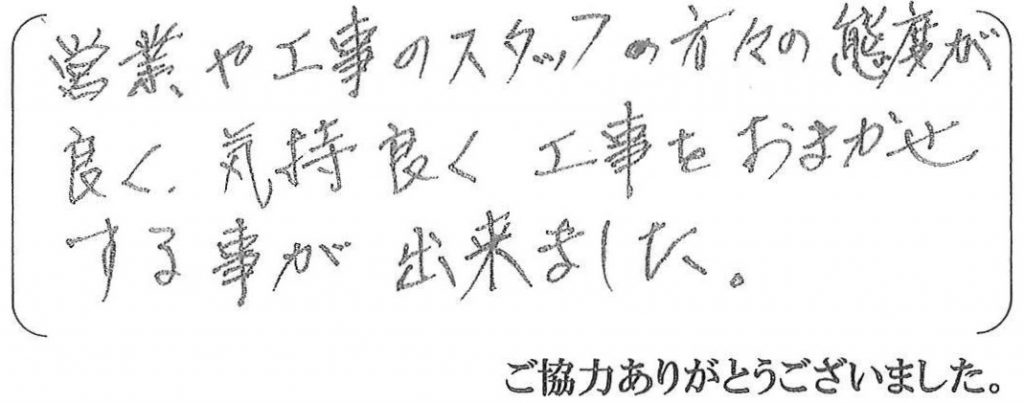 営業や工事のスタッフの方々の態度が
良く、気持良く工事をおまかせ
する事が出来ました。
ご協力ありがとうございました。